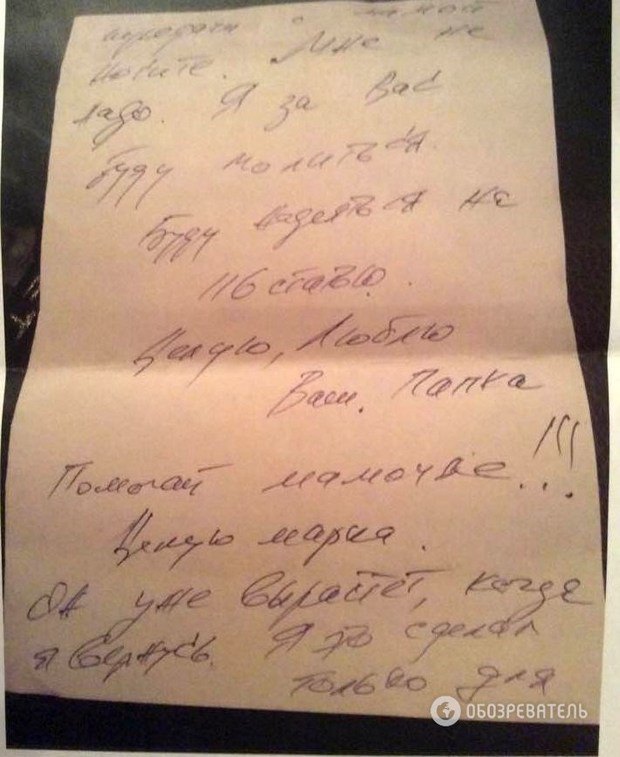 передачи с мамой
носите. Мне не
надо. Я за вас
буду молиться.
Буду надеяться на
116 статью.
Целую, Люблю
Ваш. Папка
Помогай мамочке!!!
Целую марка.
Он уже вырастет, когда
я вернусь. Я это сделал
только для
ОБОЗРЕВАТЕЛЬ